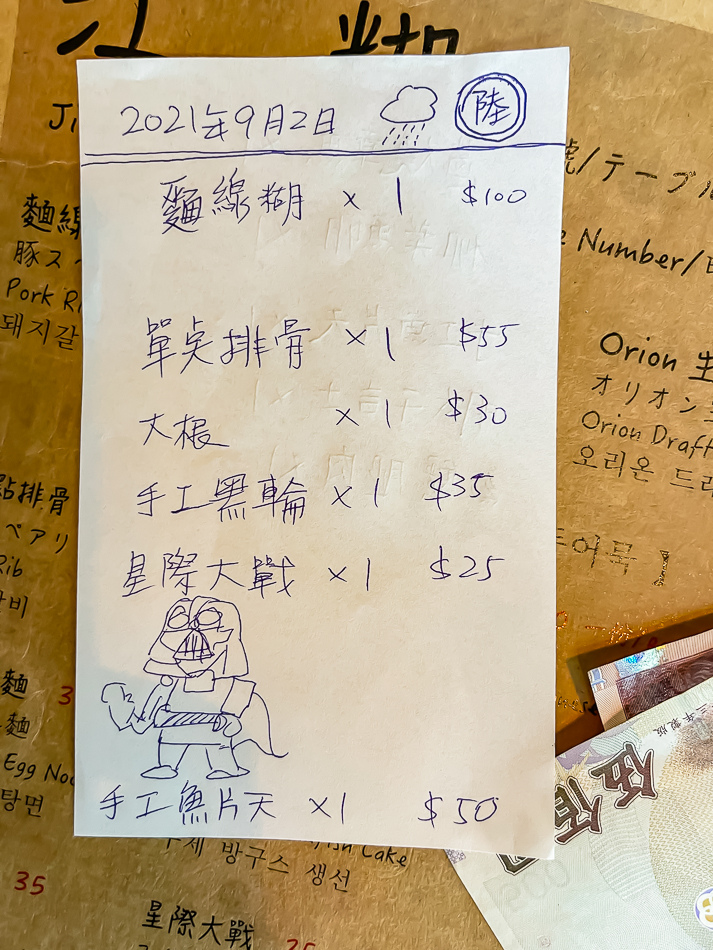 江 糊
2021年9月2日 陸
麵線糊 x 1 $100
單桌排骨 x 1 $55
大根 x 1 $30
手工黑輪 x 1 $35
星際大戰 x 1 $25
手工魚片天 x 1 $50
麵線
豚ス
Pork Ri
돼지갈
點排骨
ペアリ
Rib
비
麵 3
麵
Egg Noo
탕면
35
수제 방구스 생선
Fish Cake
星際大戰
25
號/テーブル
e Number/
Orion 生
オリオン
Orion Draft
오리온 드라
어묵】